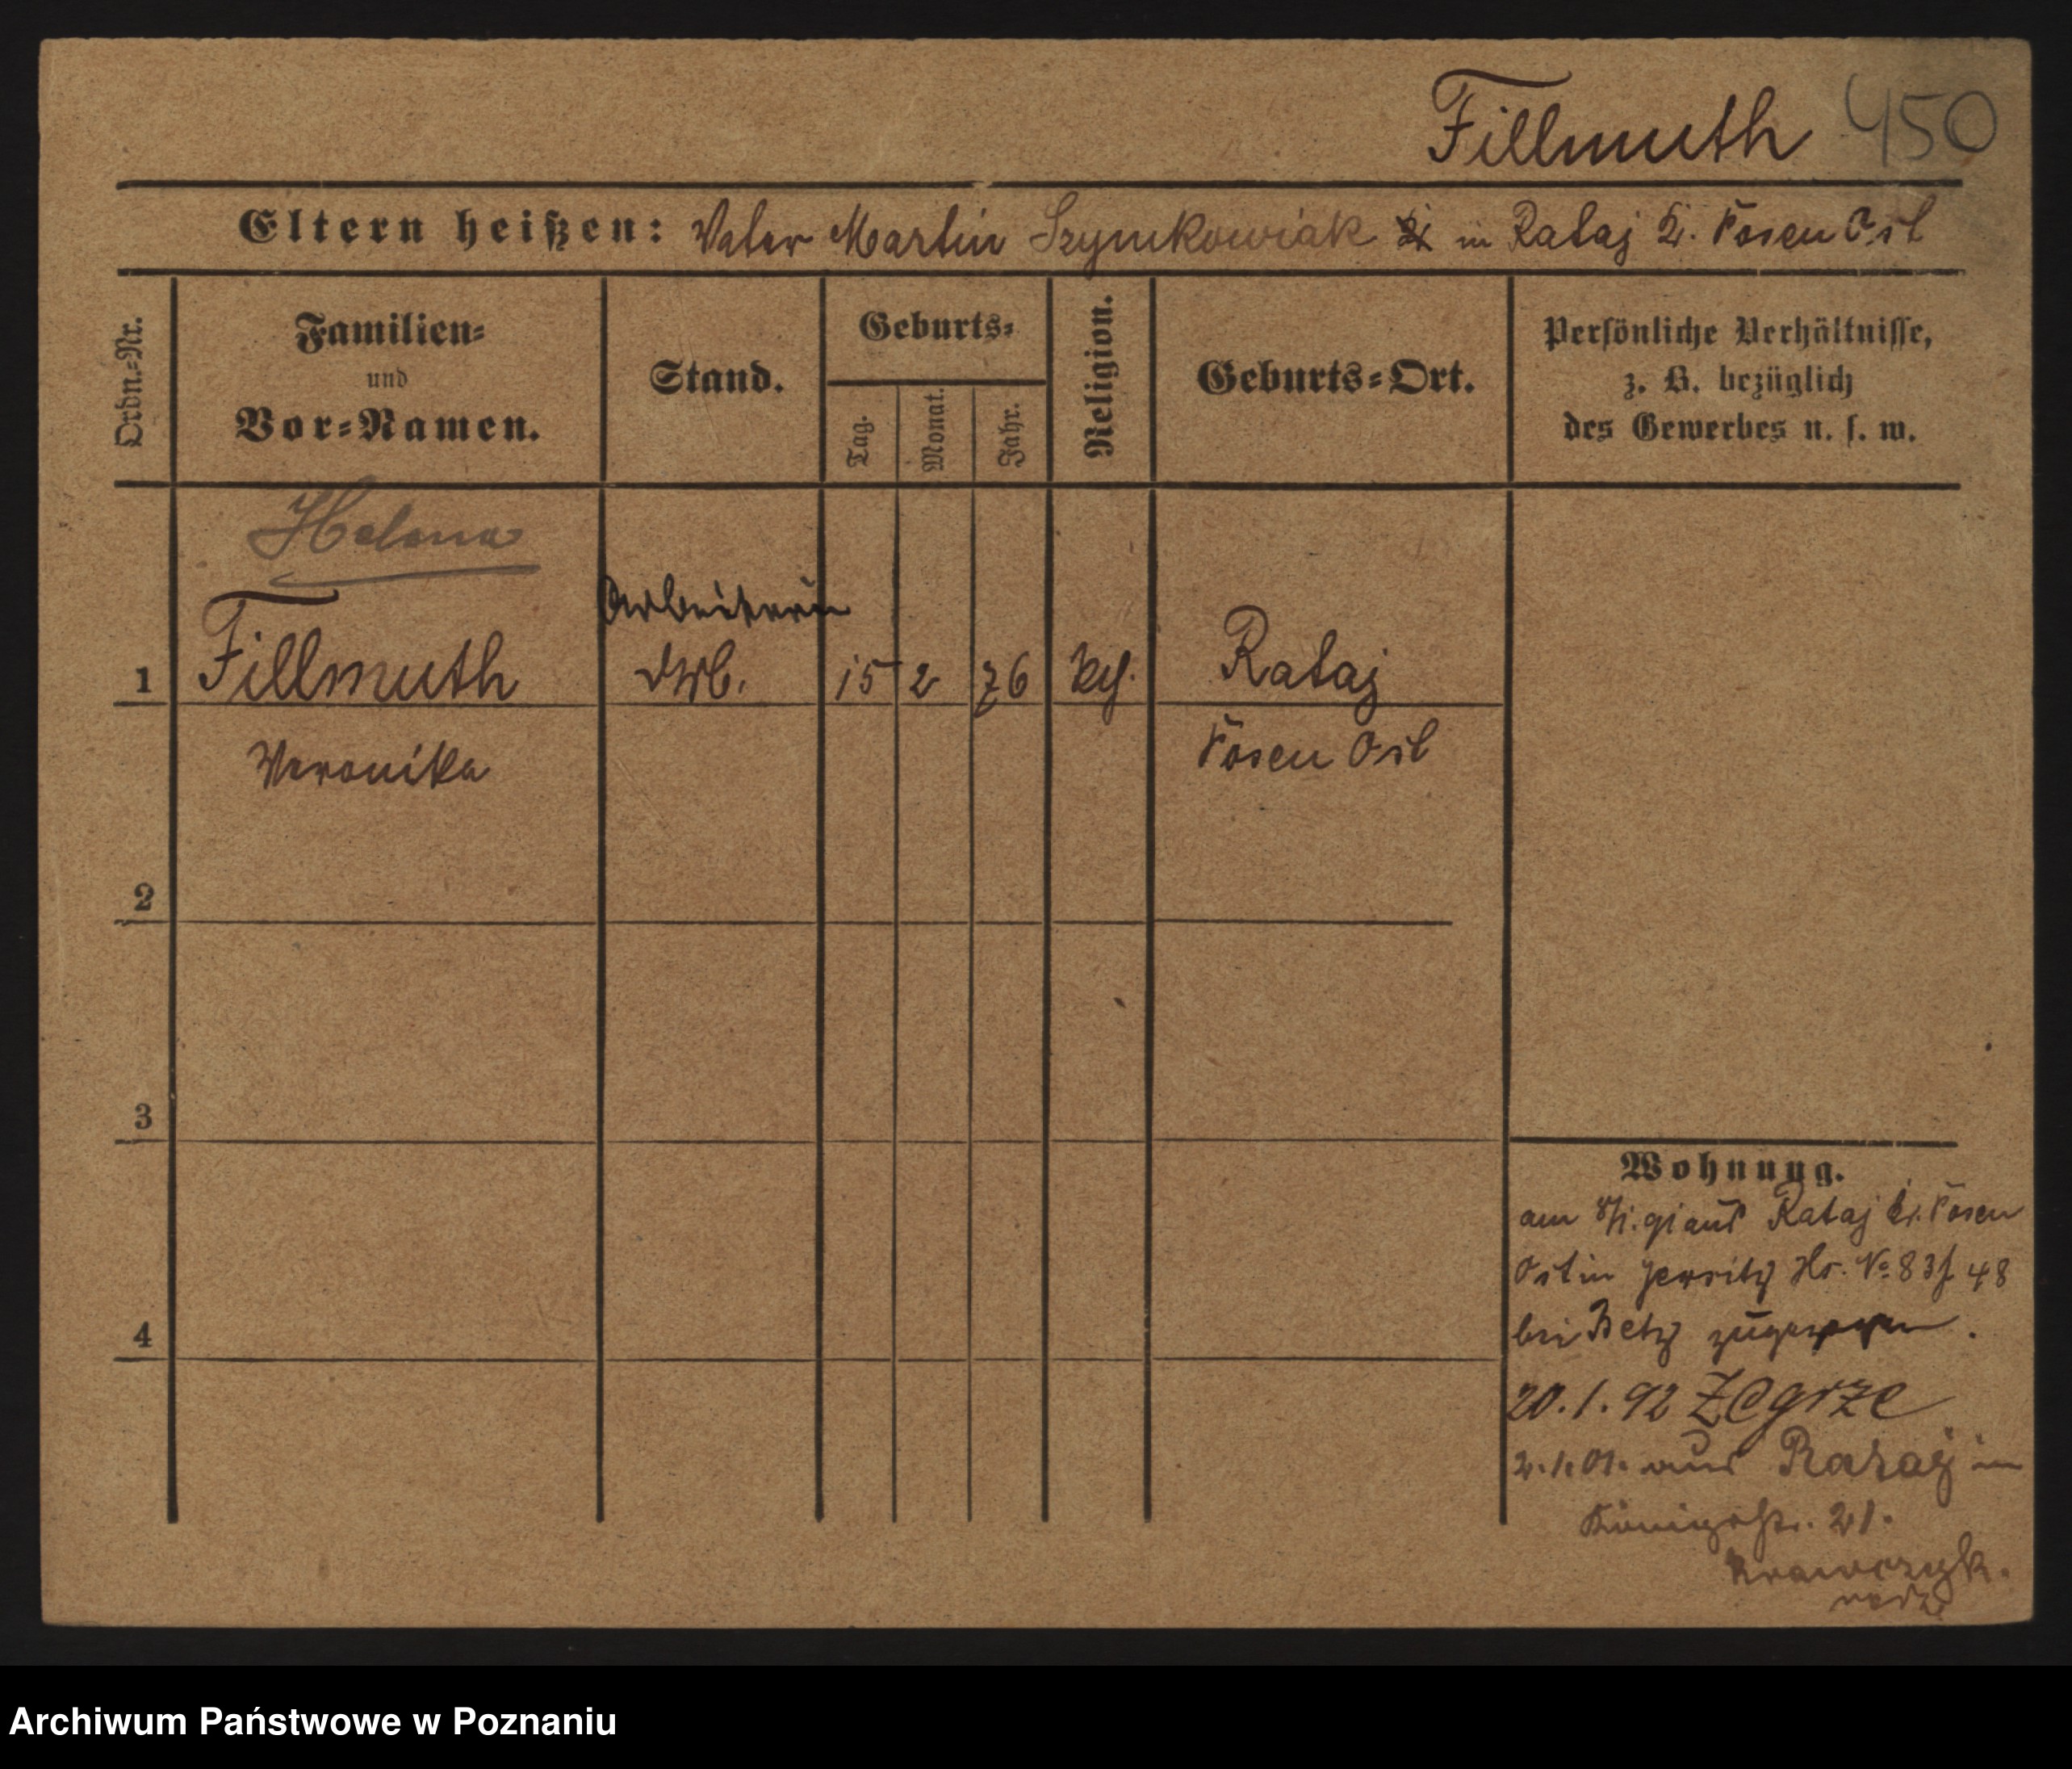 Fillmuth 450
Eltern heißen: Vater Martin Szymkowiak in Rataj Kr. Posen Ost
Ordn.-Nr.
Familien-
und
Vor-Namen.
Stand.
Geburts-
Tag.
Monat.
Jahr.
Religion.
Geburts-Ort.
Persönliche Verhältnisse,
z. B. bezüglich
des Gewerbes u. s. w.
Helena
Arbeiterin
1 Fillmuth 15 2 76 Rataj
Veronika Posen Ost
2
3
4
Wohnung.
am aus Rataj Kr. Posen
Ost in Jersitz No. 83 48
bei Betz zugezogen.
20.1.92 Zegrze
2.1.01. aus Rataj in
Königstr. 21.
Krawczyk.
Archiwum Państwowe w Poznaniu